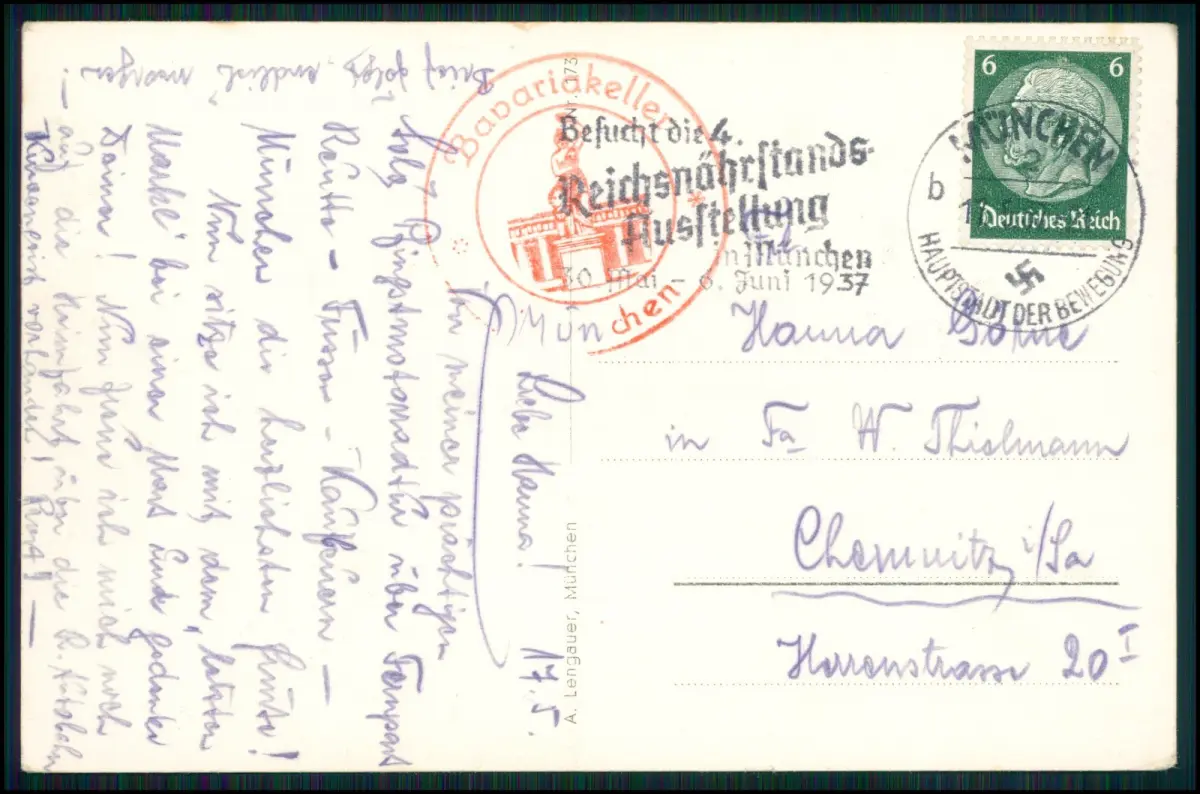 Brief folgt "endlich" morgen!
17.5.
Liebe Hanna!
Von meiner prächtigen
Solo Pfingstmotorradtur über Fernpass
Reutte - Füssen - Kaufbeuren -
München die herzlichsten Grüße!
Nun sitze ich mit dem "letzten
Markl" bei einer Mass und gedenke
Deiner! Nun freu ich mich noch
- auf die Heimfahrt über die R. Autobahn
Kurt! -
Bavariakeller
München
Nr. 173
A. Lengauer, München
Besucht die 4.
Reichsnährstands-
Ausstellung
in München
30. Mai - 6. Juni 1937
6 6
Deutsches Reich
MÜNCHEN
2
b
HAUPTSTADT DER BEWEGUNG
Hanna
in Fa W. Thielmann
Chemnitz i/Sa
Herrenstrasse 20 I